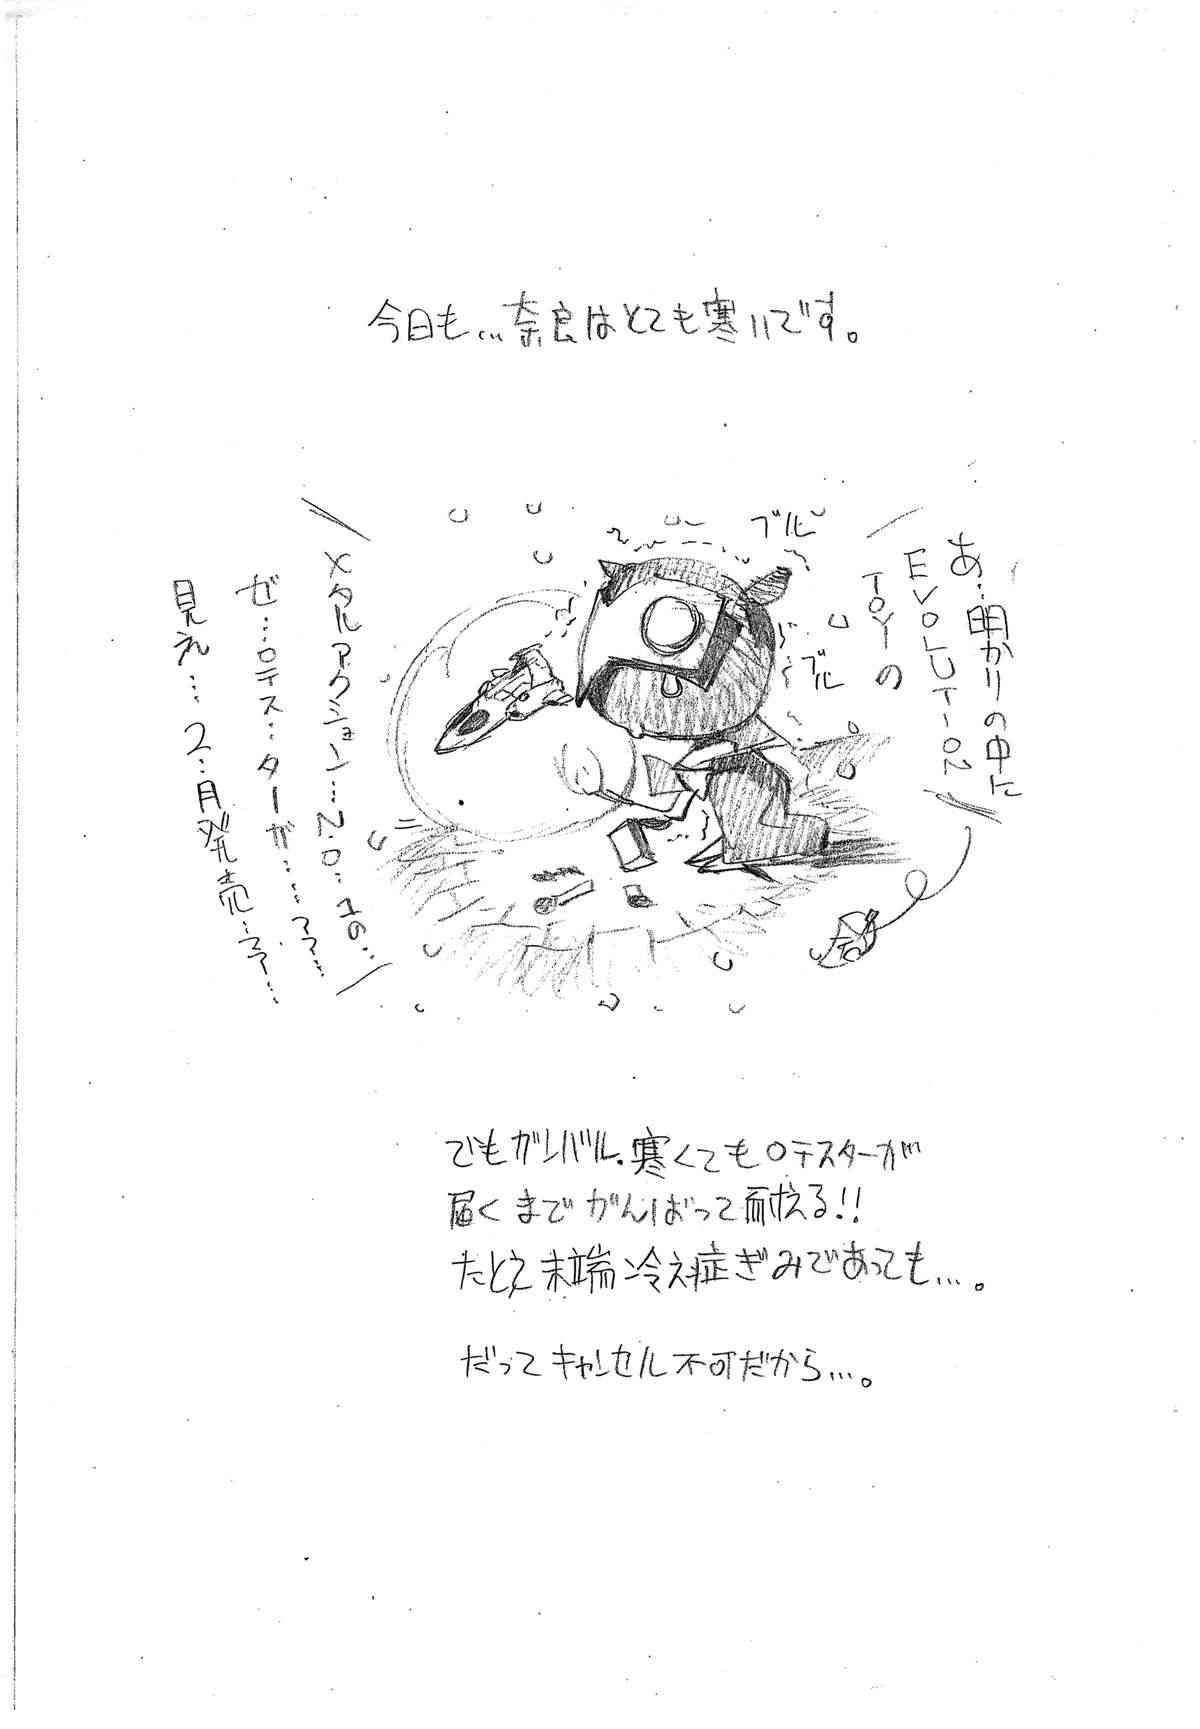 今日も…奈良はとても寒いです。
ブルﾞ
ブル
あ…明かりの中に
EVOLUTION
TOYの
メタルアクション…NO…16…
ゼ…ロテス…ターが……
見え…2…月発売…
でもガンバル.寒くても0テスターが
届くまでがんばって耐える!!
たとえ末端冷え症ぎみであっても…。
だってキャンセル不可だから…。